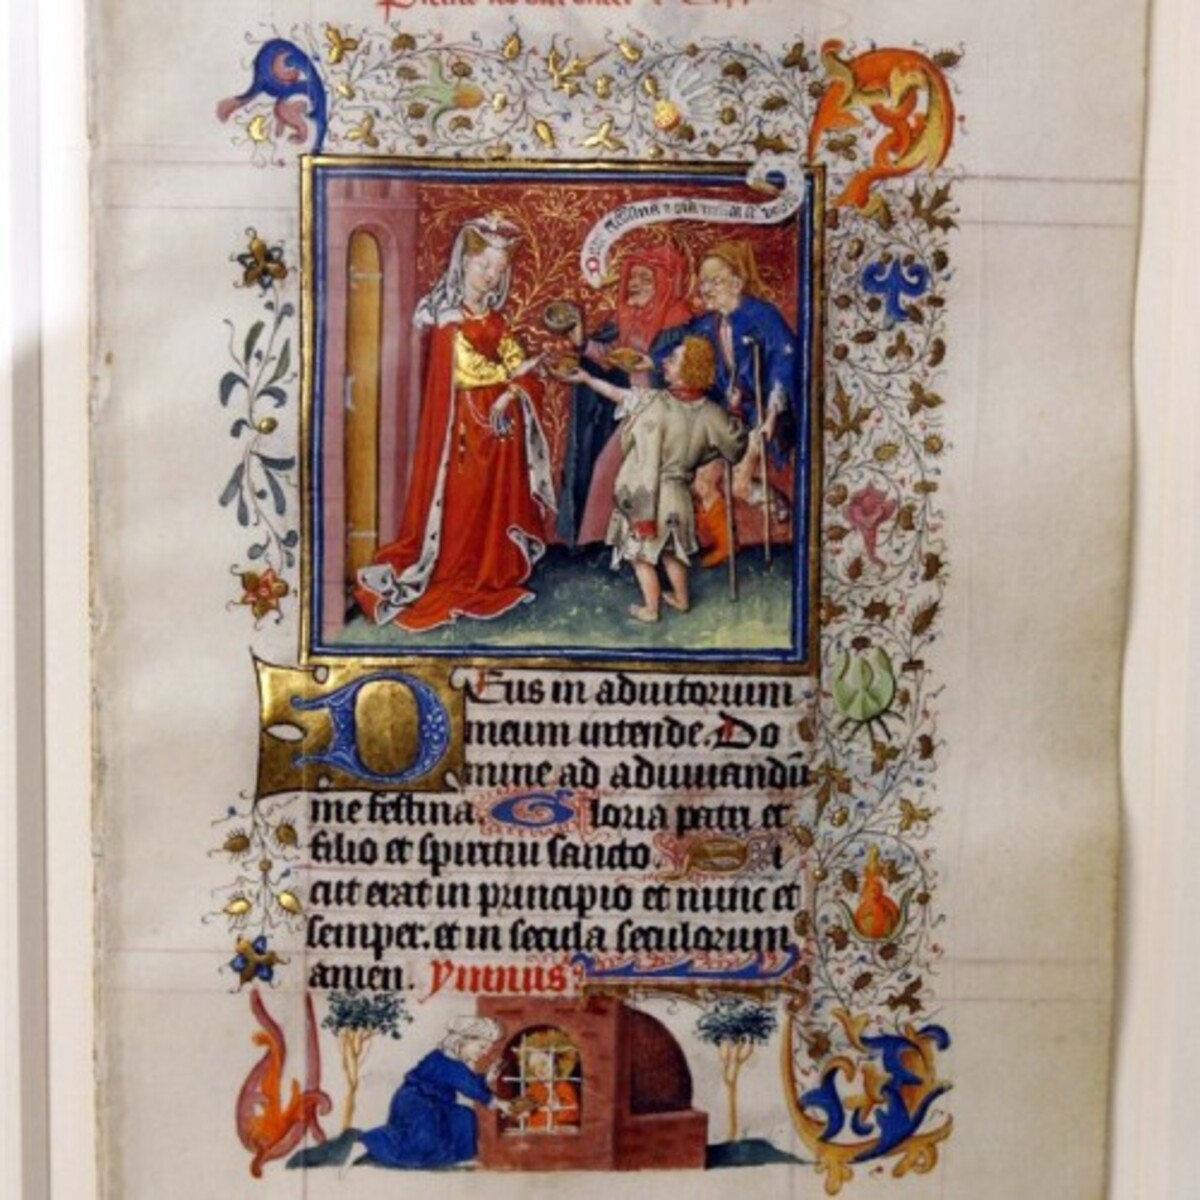 Deus in adiutorium
meum intende. Do
mine ad adiuuandū
me festina. Gloria patri et
filio et spiritui sancto. Si
cut erat in principio et nunc et
semper. et in secula seculorum
amen. Ymnus